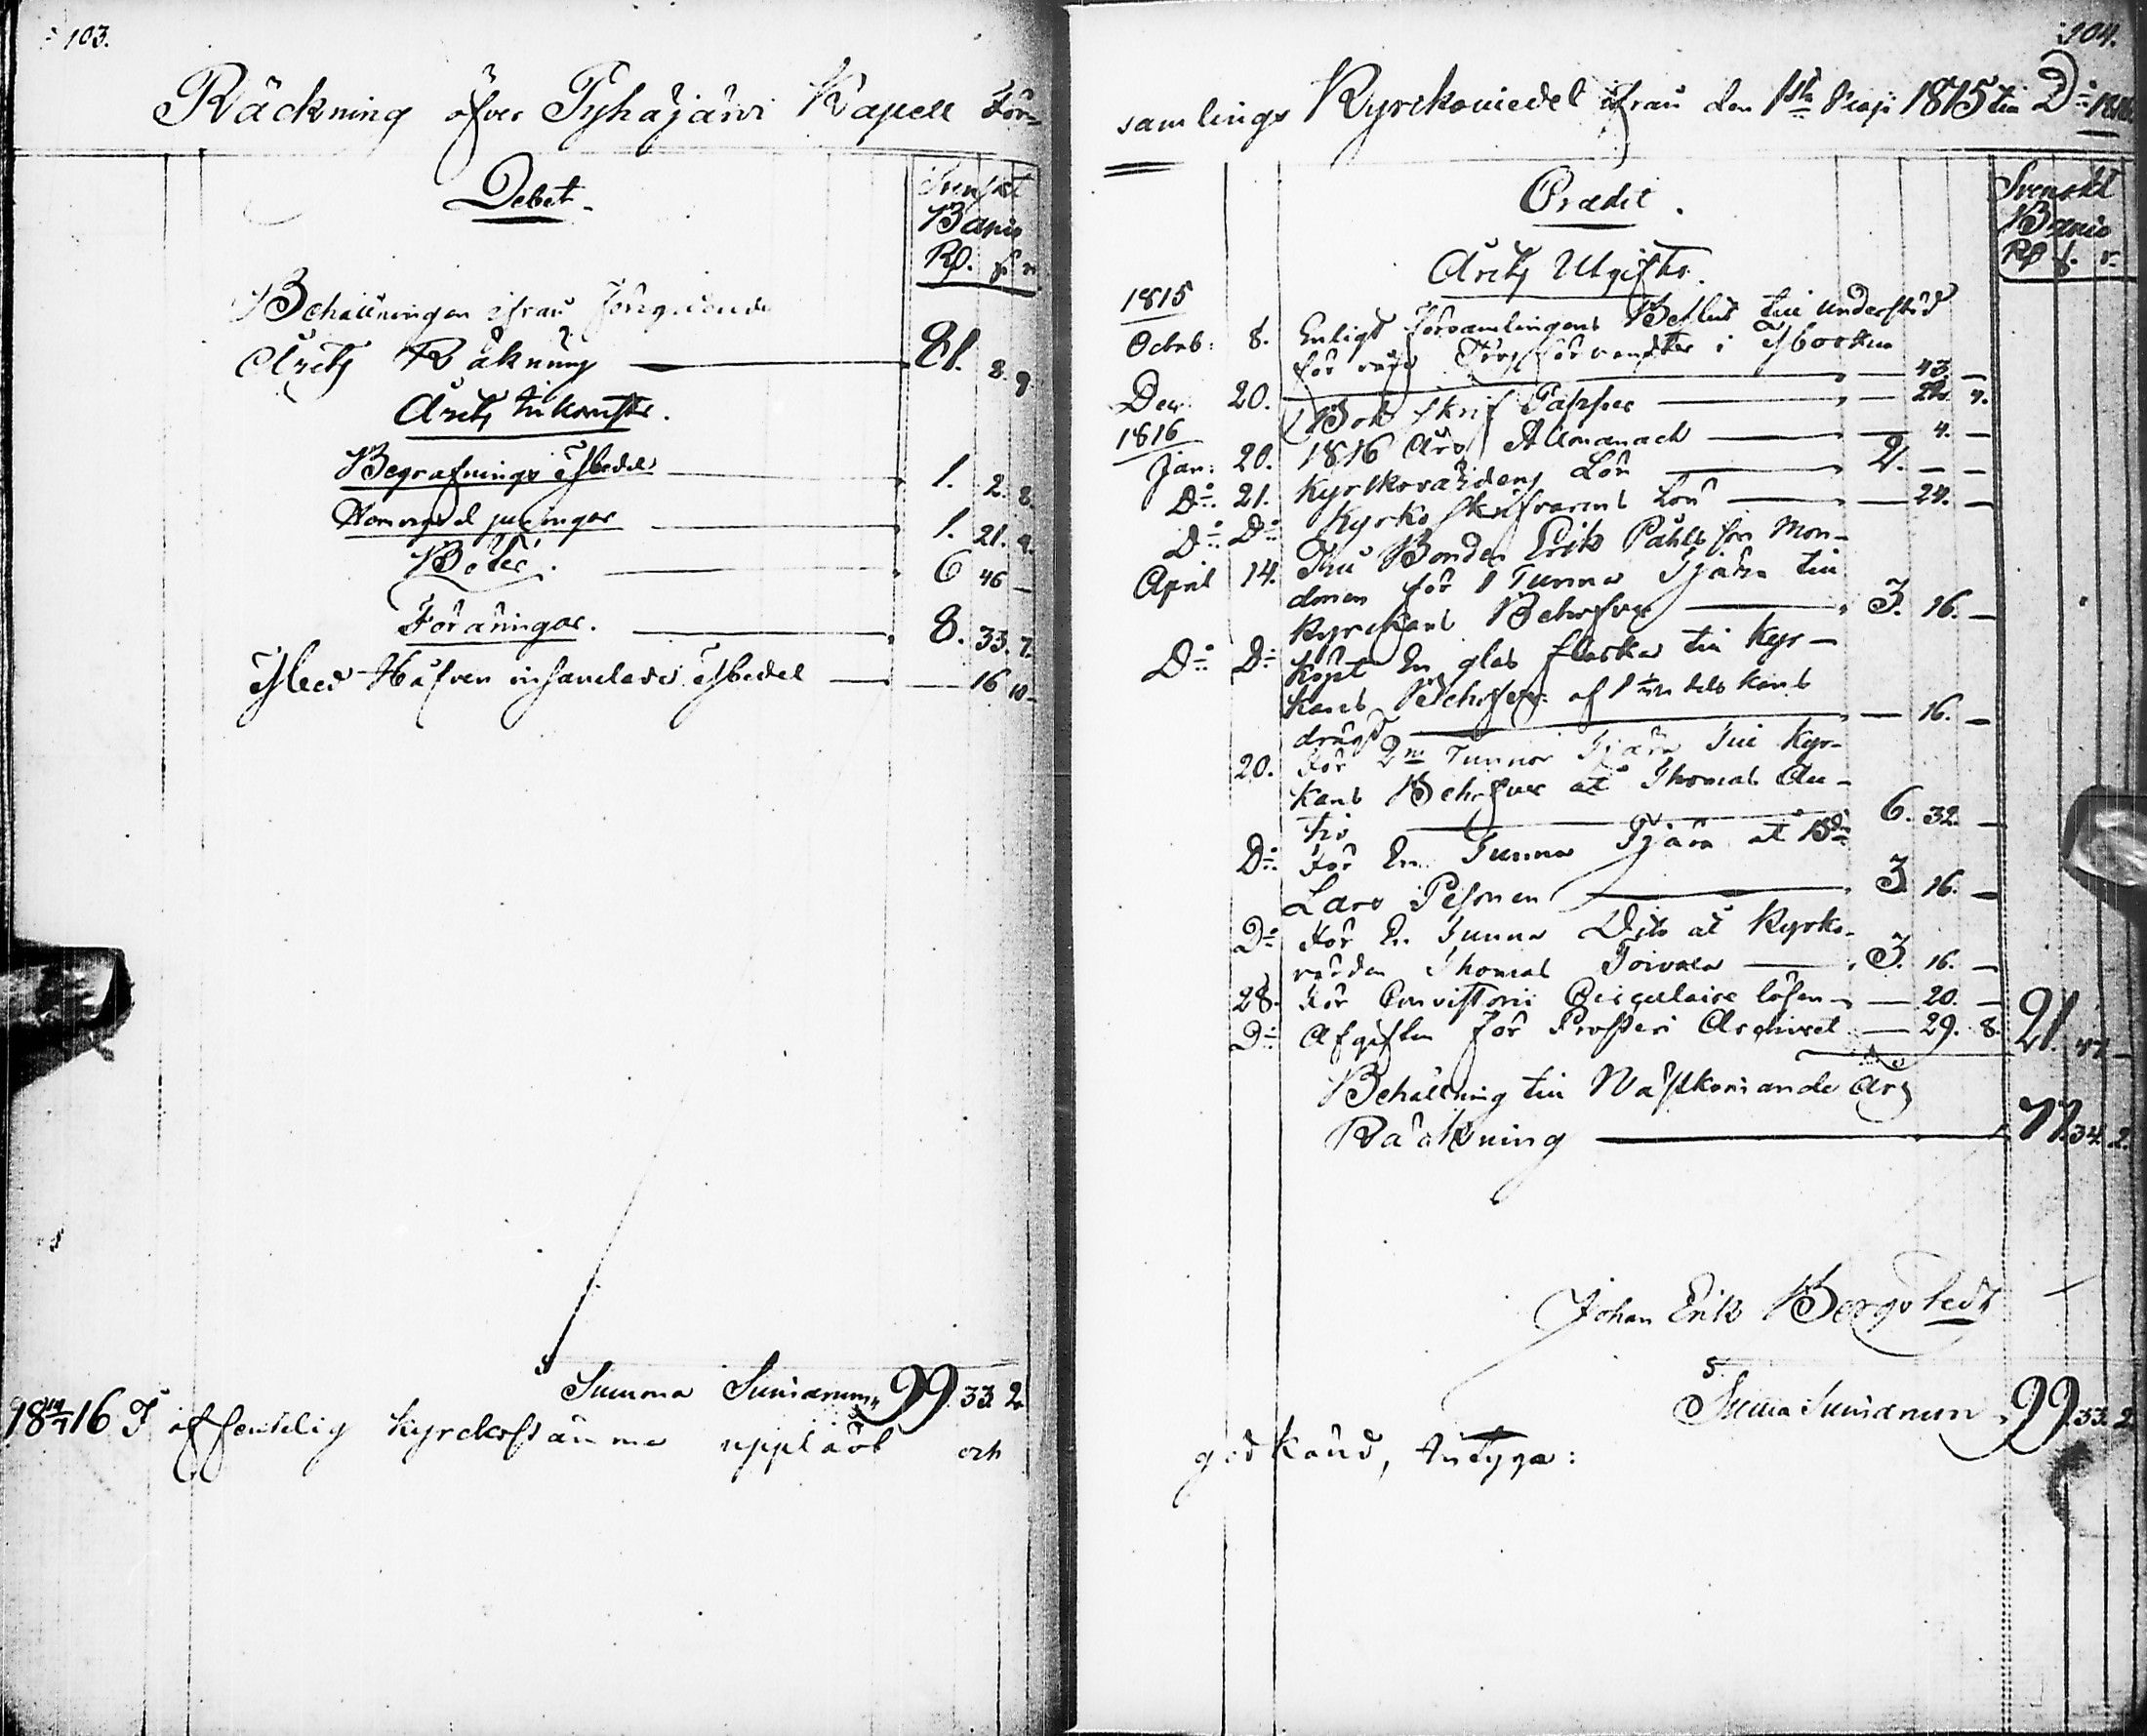 103.
Räckning öfver Pyhäjärvi Kapell För=
Debet.
Svenskt
Banco
Rd. s. r.
Behållningen ifrån föregående
Årets Räkning 81. 8. 9.
Årets Inkomster.
Begrafnings Medel 1. 2. 8.
penningar 1. 21. 4.
Böter. 6 46 –
Föräringar. 8. 33. 7.
Med Håfven insamlade Medel 16 10
Summa Summarum 99. 33. 2
18 14/7 16 I offentelig kyrckostämma uppläst och
104.
samlings Kyrckomedel ifrån den 1sta Maji 1815 till Do 1816
Credit.
Svenskt
Banco
Rd s. r.
Årets Utgifter.
1815
Octob: 8. Enligt Församlingens Beslut till understöd
för 43. –
Dec. 20. Bok skrif Papper 4.
1816
Jan: 20. 1816 Års Almanach 4. –
Do: 21. Kyrkovärdens Lön 2. – –
Do: Do Kyrko skrifvarens Lön 24. –
April 14. Till Bonden Erik Påhlsson Mon-
donen för 1 Tunna Tjära till
Kyrckans Behofver 3. 16. –
Do: Do Köpt En glas flaska till Kyr-
kans Behofver af 1 kans
16. –
20. För 2ne Tunnor Tjära till Kyr-
kans Behofver åt Thomas Au-
tio 6. 32. –
Do: För En Tunna Tjära åt Bdn
Lars Pesonen 3 16. –
Do För En Tunna Dito åt Kyrko-
värden Thomas Toivola 3. 16. –
28. För Consistorii Circulaire lösen 20. –
Do Afgiften för Prosteri Archivet 29. 8. 21. 47 –
Behållning till Nästkommande Års
Räckning 77. 34. 2.
Johan Erik Bergstedt
S.
Summa Summarum 99. 33. 2
godkänd, intyga: